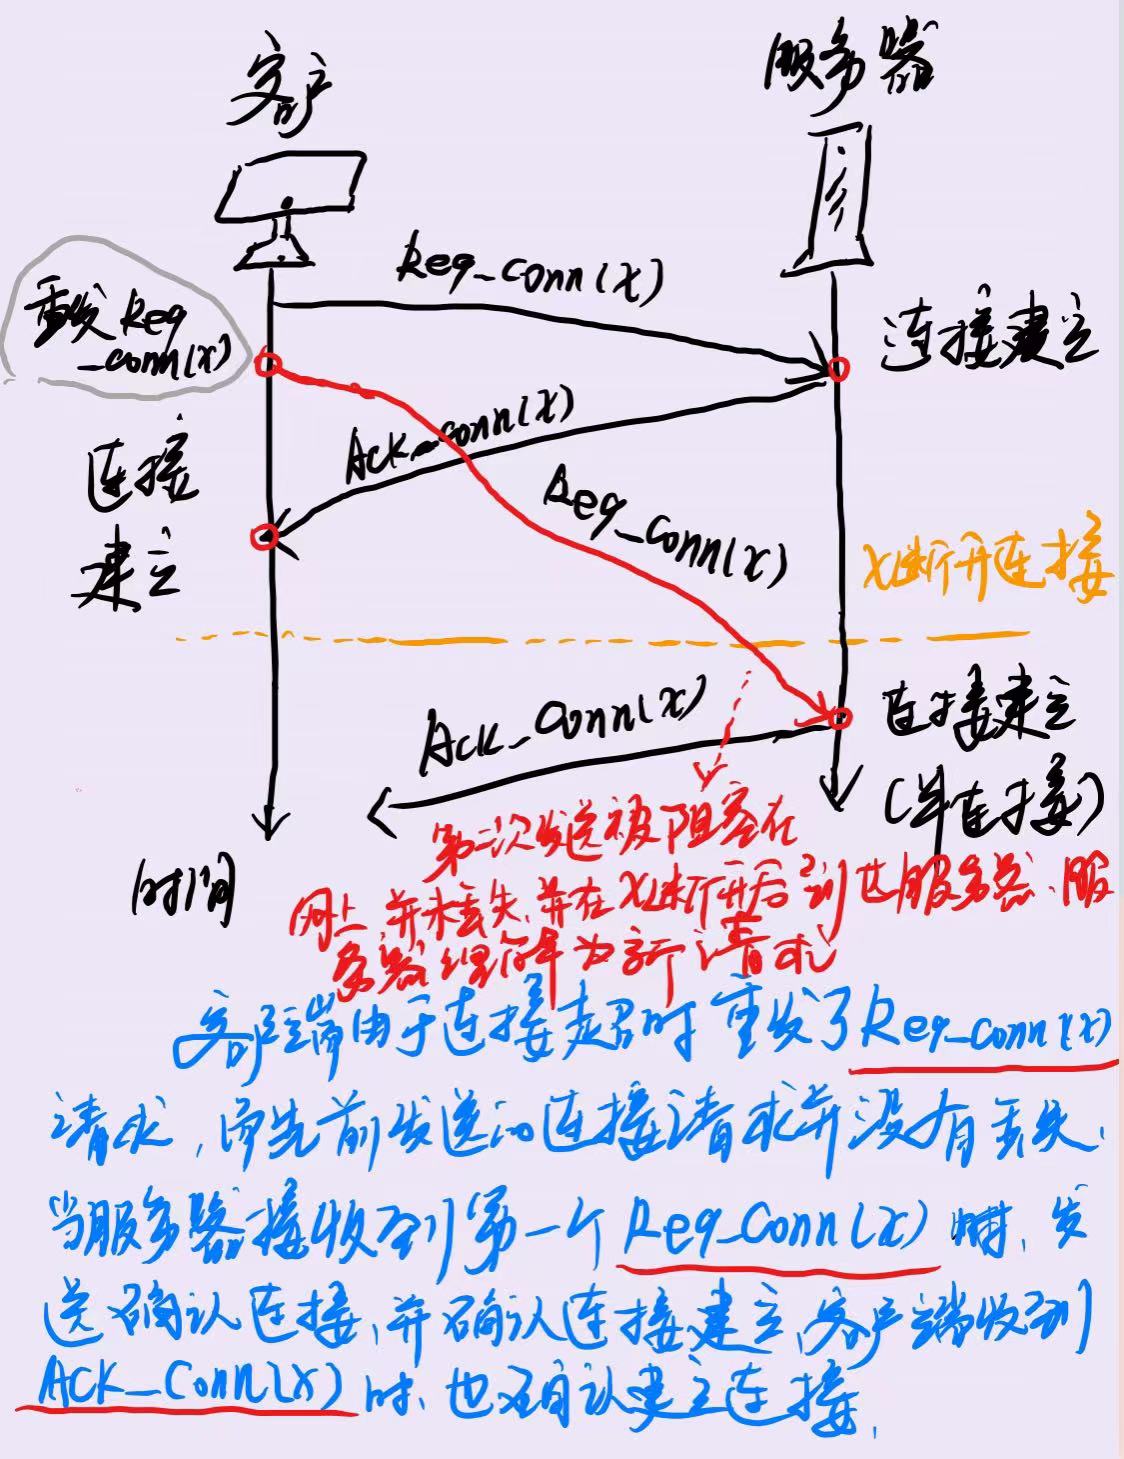 客户
服务器
Req_conn(x)
重发Req
_conn(x)
连接建立
Ack_conn(x)
连接
建立
Req_conn(x)
x断开连接
Ack_conn(x)
连接建立
(半连接)
时间
第二次发送被阻塞在
网上,并未丢失,并在x断开后到达服务器,服
务器理解为新请求
客户端由于连接超时重发了Req_conn(x)
请求,而先前发送的连接请求并没有丢失,
当服务器接收到第一个Req_conn(x)时,发
送确认连接,并确认连接建立,客户端收到
ACK_Conn(x)时,也确认建立连接,